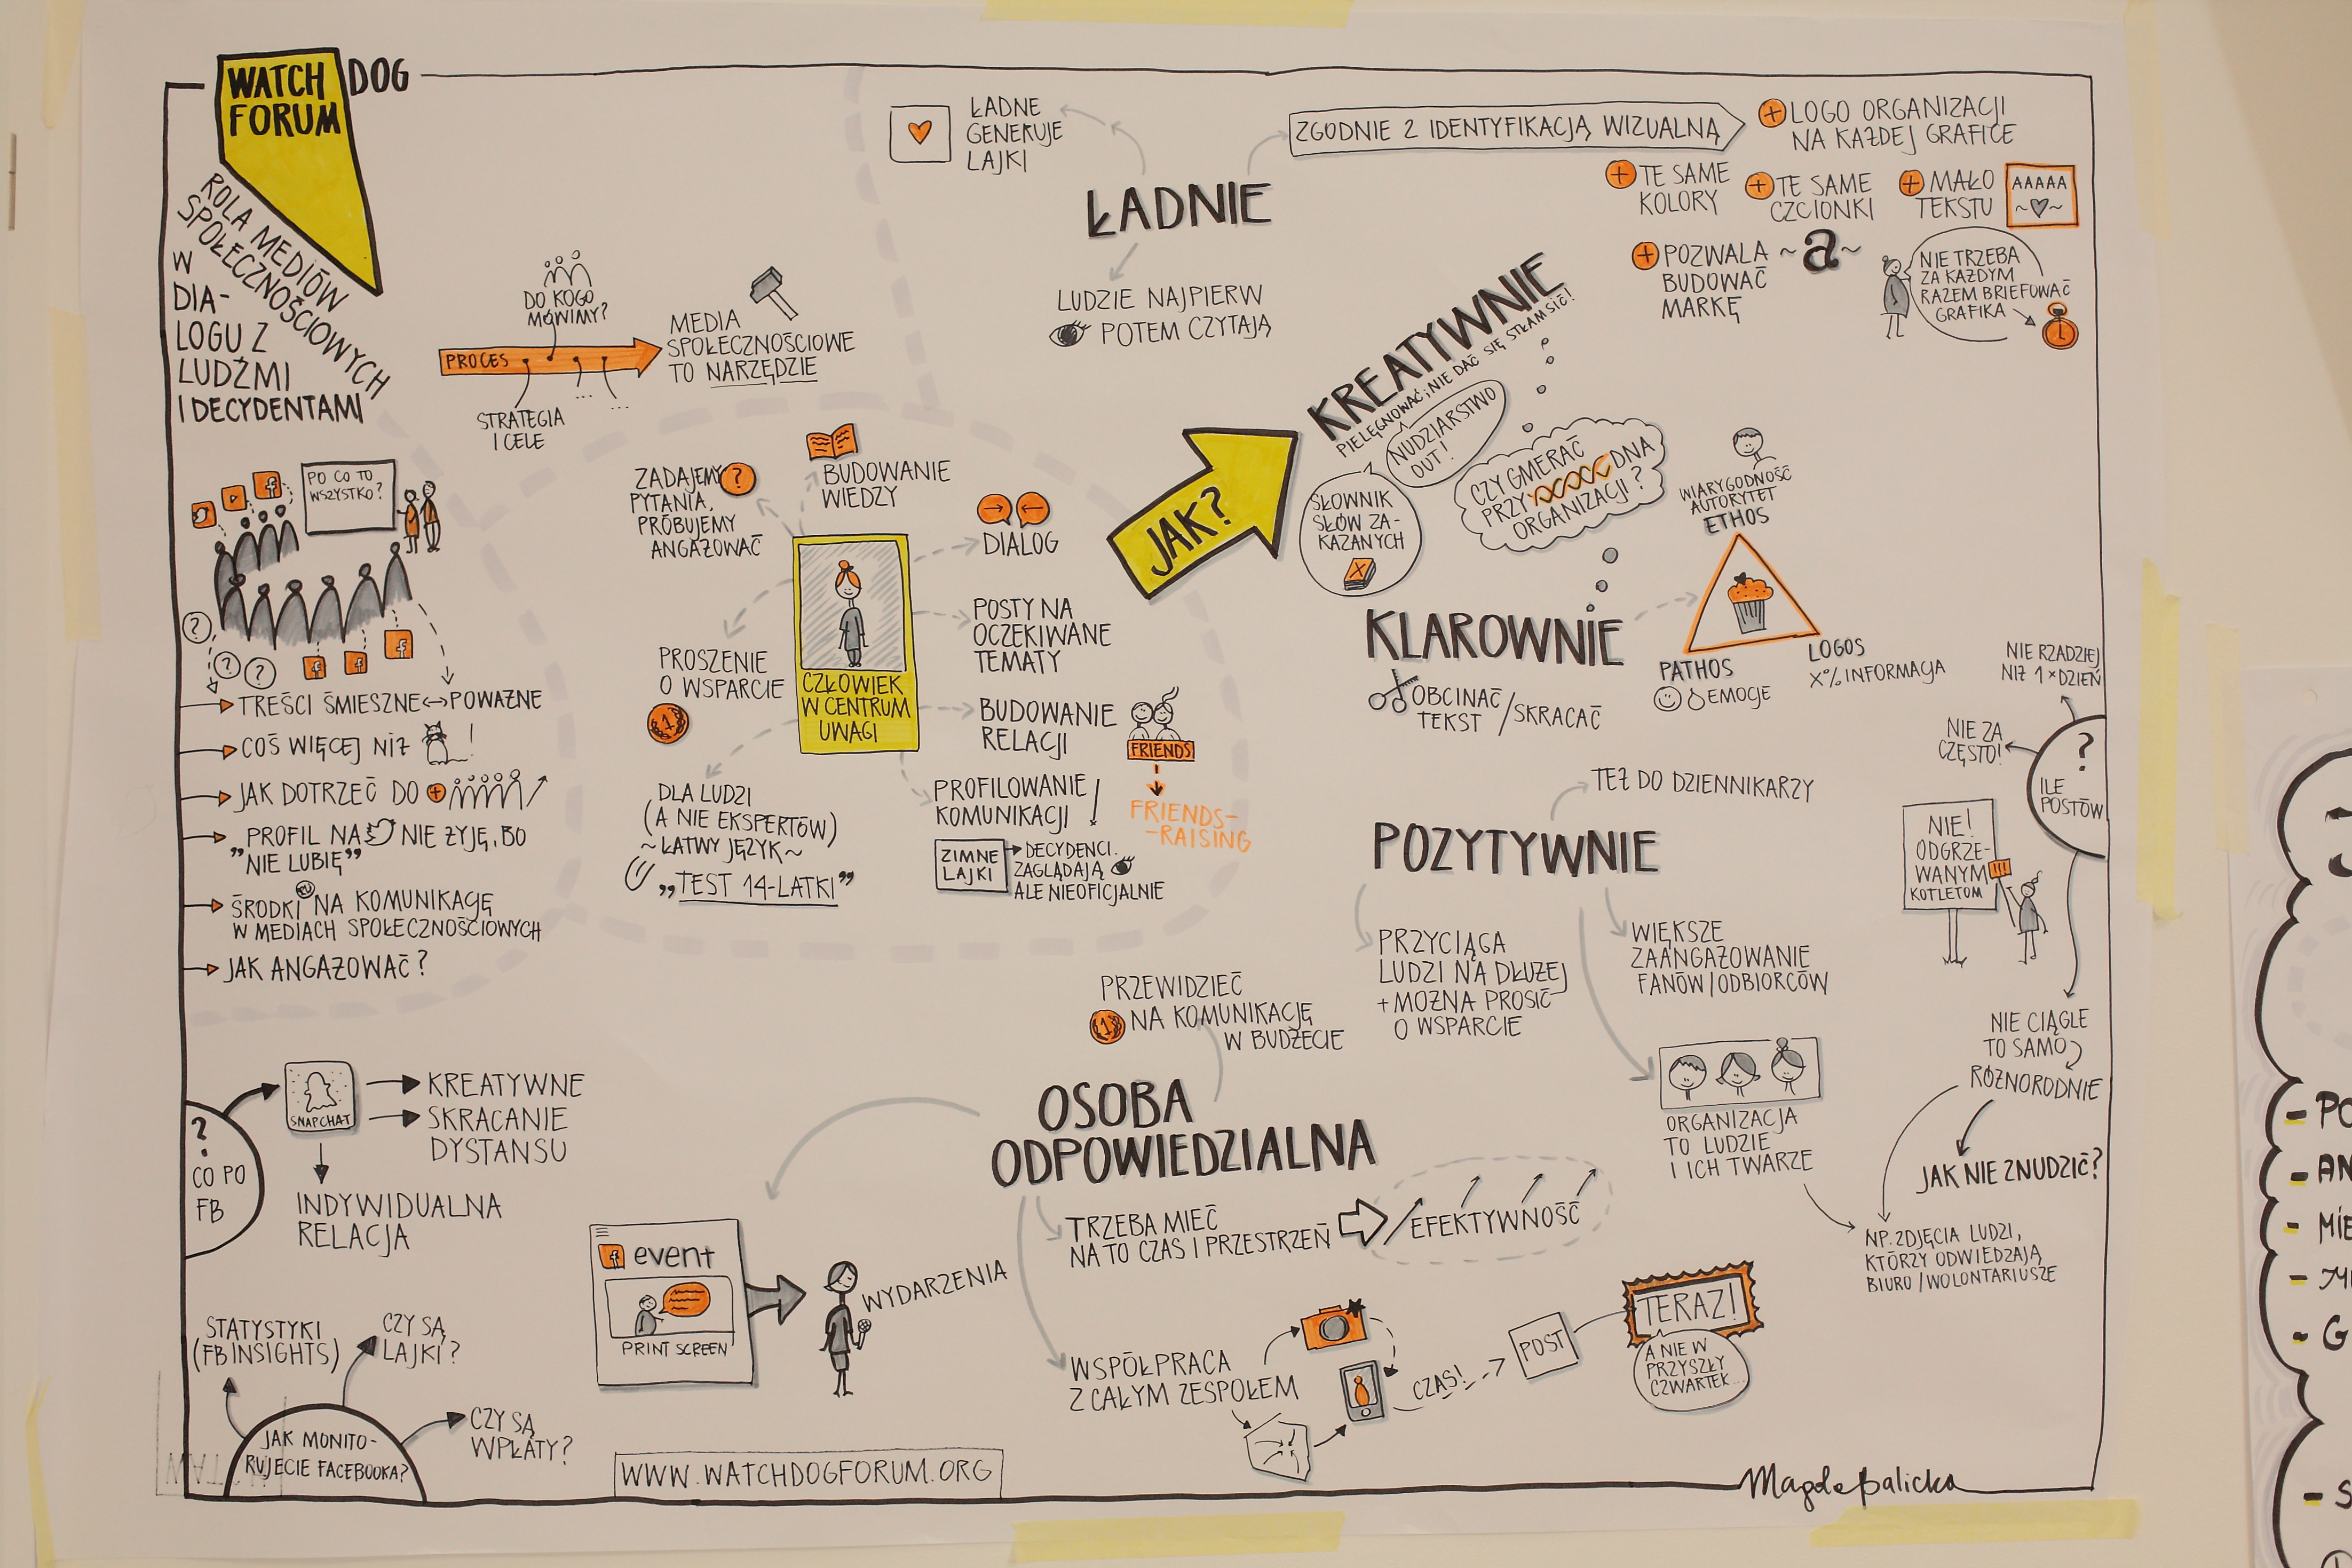 WATCH DOG
FORUM
ROLA MEDIÓW
SPOŁECZNOŚCIOWYCH
W
DIA-
LOGU Z
LUDŹMI
I DECYDENTAMI
DO KOGO
MÓWIMY?
PROCES
STRATEGIA
I CELE
...
...
MEDIA
SPOŁECZNOŚCIOWE
TO NARZĘDZIE
PO CO TO
WSZYSTKO?
f
?
?
?
f
f
f
TREŚCI ŚMIESZNE ↔ POWAŻNE
COŚ WIĘCEJ NIŻ !
JAK DOTRZEĆ DO +
„PROFIL NA NIE ŻYJĘ, BO
NIE LUBIĘ”
ŚRODKI NA KOMUNIKACJĘ
W MEDIACH SPOŁECZNOŚCIOWYCH
JAK ANGAŻOWAĆ?
ZADAJEMY ?
PYTANIA,
PRÓBUJEMY
ANGAŻOWAĆ
BUDOWANIE
WIEDZY
DIALOG
POSTY NA
OCZEKIWANE
TEMATY
PROSZENIE
O WSPARCIE
1
CZŁOWIEK
W CENTRUM
UWAGI
BUDOWANIE
RELACJI
FRIENDS
FRIENDS-
-RAISING
DLA LUDZI
(A NIE EKSPERTÓW)
~ŁATWY JĘZYK~
„TEST 14-LATKI”
PROFILOWANIE
KOMUNIKACJI !
ZIMNE
LAJKI
DECYDENCI
ZAGLĄDAJĄ
ALE NIEOFICJALNIE
JAK?
ŁADNE
GENERUJE
LAJKI
ŁADNIE
LUDZIE NAJPIERW
POTEM CZYTAJĄ
ZGODNIE Z IDENTYFIKACJĄ WIZUALNĄ
+ LOGO ORGANIZACJI
NA KAŻDEJ GRAFICE
+ TE SAME
KOLORY
+ TE SAME
CZCIONKI
+ MAŁO
TEKSTU
AAAAA
~♡~
+ POZWALA
BUDOWAĆ
MARKĘ
~a~
NIE TRZEBA
ZA KAŻDYM
RAZEM BRIEFOWAĆ
GRAFIKA
KREATYWNIE
PIELĘGNOWAĆ; NIE DAĆ SIĘ STŁAMSIĆ!
NUDZIARSTWO
OUT!
SŁOWNIK
SŁÓW ZA-
KAZANYCH
X
CZY GMERAĆ
PRZY DNA
ORGANIZACJI?
WIARYGODNOŚĆ
AUTORYTET
ETHOS
KLAROWNIE
OBCINAĆ
TEKST /SKRACAĆ
PATHOS
EMOCJE
LOGOS
X% INFORMACJA
POZYTYWNIE
TEŻ DO DZIENNIKARZY
PRZYCIĄGA
LUDZI NA DŁUŻEJ
+ MOŻNA PROSIĆ
O WSPARCIE
WIĘKSZE
ZAANGAŻOWANIE
FANÓW/ODBIORCÓW
ORGANIZACJA
TO LUDZIE
I ICH TWARZE
?
ILE
POSTÓW
NIE RZADZIEJ
NIŻ 1×DZIEŃ
NIE ZA
CZĘSTO!
NIE!
ODGRZE-
WANYM
KOTLETOM
!!!
NIE CIĄGLE
TO SAMO
RÓŻNORODNIE
JAK NIE ZNUDZIĆ?
NP. ZDJĘCIA LUDZI,
KTÓRZY ODWIEDZAJĄ
BIURO/WOLONTARIUSZE
OSOBA
ODPOWIEDZIALNA
PRZEWIDZIEĆ
1 NA KOMUNIKACJĘ
W BUDŻECIE
TRZEBA MIEĆ
NA TO CZAS I PRZESTRZEŃ
EFEKTYWNOŚĆ
WSPÓŁPRACA
Z CAŁYM ZESPOŁEM
CZAS!
POST
TERAZ!
A NIE W
PRZYSZŁY
CZWARTEK...
f event
PRINT SCREEN
WYDARZENIA
?
CO PO
FB
SNAPCHAT
KREATYWNE
SKRACANIE
DYSTANSU
INDYWIDUALNA
RELACJA
STATYSTYKI
(FB INSIGHTS)
CZY SĄ
LAJKI?
CZY SĄ
WPŁATY?
JAK MONITO-
RUJECIE FACEBOOKA?
WWW.WATCHDOGFORUM.ORG
Magda Balicka
- PO
- AN
- MIE
- G
- S